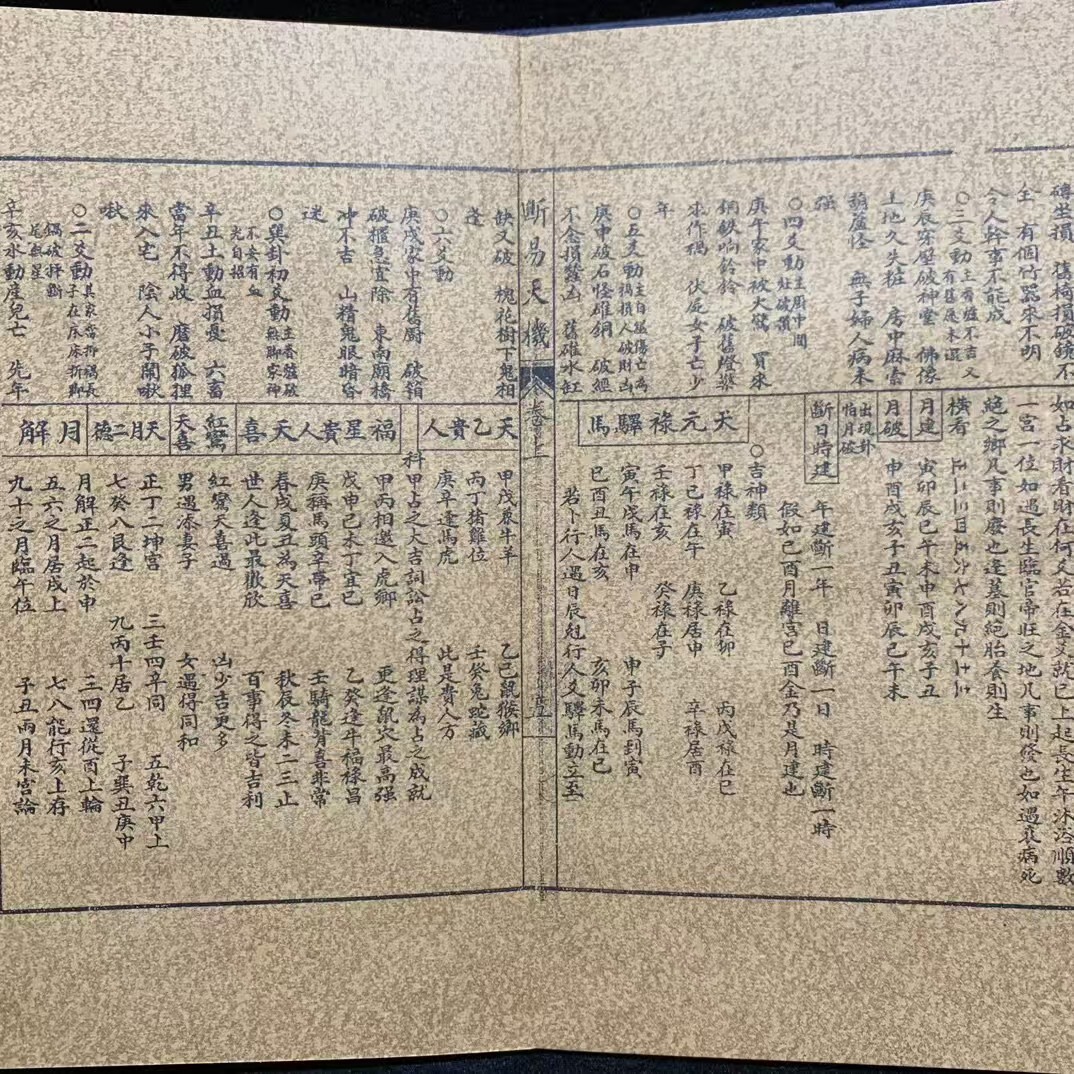 磚坐損　舊椅損破鏡不
全　有個竹器來不明
令人幹事不能成
○三爻動
庚辰穿壓破神堂　佛像
土地久失粧　房中麻索
葫蘆怪　無子婦人病未
強
○四爻動
庚午家中被大驚　買來
銅鉄响鈴鈴　破舊燈檠
來作禍　伏屍女子亡少
年
○五爻動
庚申破石怪雄銅　破經
不念損蠶凶　舊碓水缸
如占求財看財在何爻若在金爻就巳上起長生午沐浴順數
一宮一位如遇長生臨官帝旺之地凡事則發也如遇衰病死
絕之鄉凡事則廢也逢墓則絕胎養則生
橫看　正二三四五六七八九十十一十二
月建　寅卯辰巳午未申酉戌亥子丑
月破　申酉戌亥子丑寅卯辰巳午未
出現卦
怕月破
斷日時建
年建斷一年　日建斷一日　時建斷一時
假如己酉月離宮己酉金乃是月建也
○吉神類
天元祿驛馬
甲祿在寅　乙祿在卯　丙戊祿在巳
丁己祿在午　庚祿居申　辛祿居酉
壬祿在亥　癸祿在子
寅午戌馬在申　申子辰馬到寅
巳酉丑馬在亥　亥卯未馬在巳
若卜行人遇日辰尅行人爻驛馬動立至
斷易天機
卷之上
缺又破　槐花樹下鬼相
逢
○六爻動
庚戌家中有舊厨　破箱
破櫃急宜除　東南廟橋
冲不吉　山精鬼眼暗昏
迷
○巽卦初爻動
不安有血
光自招
辛丑土動血損憂　六畜
當年不得收　磨破狐狸
來入宅　陰人小子鬧啾
啾
○二爻動
辛亥水動産兒亡　先年
天乙貴人
甲戊兼牛羊　乙己鼠猴鄉
丙丁猪雞位　壬癸兔蛇藏
庚辛逢馬虎　此是貴人方
科甲占之大吉詞訟占之得理謀為占之成就
福星貴人
甲丙相邀入虎鄉　更逢鼠穴最高强
戊申己未丁宜巳　乙癸逢牛福祿昌
庚稱馬頭辛帶巳　壬騎龍背喜非常
天喜
春戌夏丑為天喜　秋辰冬未二三止
世人逢此最歡欣　百事得之皆吉利
紅鸞天喜
紅鸞天喜遇　凶少吉更多
男遇添妻子　女遇得同和
天月二德
正丁二坤宮　三壬四辛同　五乾六甲上
七癸八艮逢　九丙十居乙　子巽丑庚中
月解
月解正二起於申　三四還從酉上輪
五六之月居戌上　七八能行亥上存
九十之月臨午位　子丑兩月未宮論